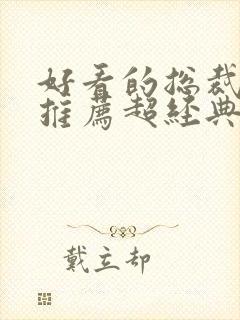 好看的总裁
推薦超經典
戴立却